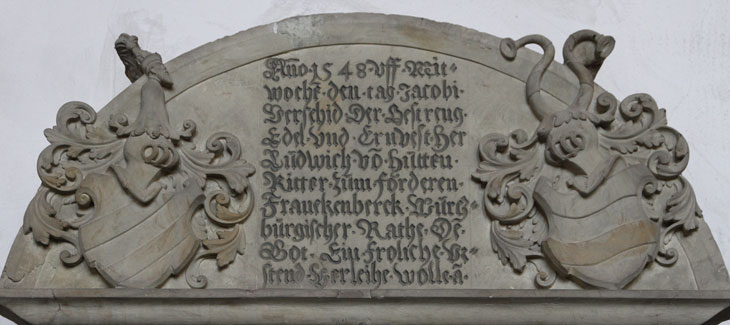 Ano·1548·Vff·Mit-
woche·den·tag·Jacobi·
Verschid·Der·Gestreng·
Edel·vnd·Ernvest·Her
Ludwich·vō·Hutten·
Ritter·zum·förderen·
Franckenberck·Würtz-
bürgischer·Rathe·De·
Got·Ein·froliche·Vr-
stend·Verleihe·wolle·ā·